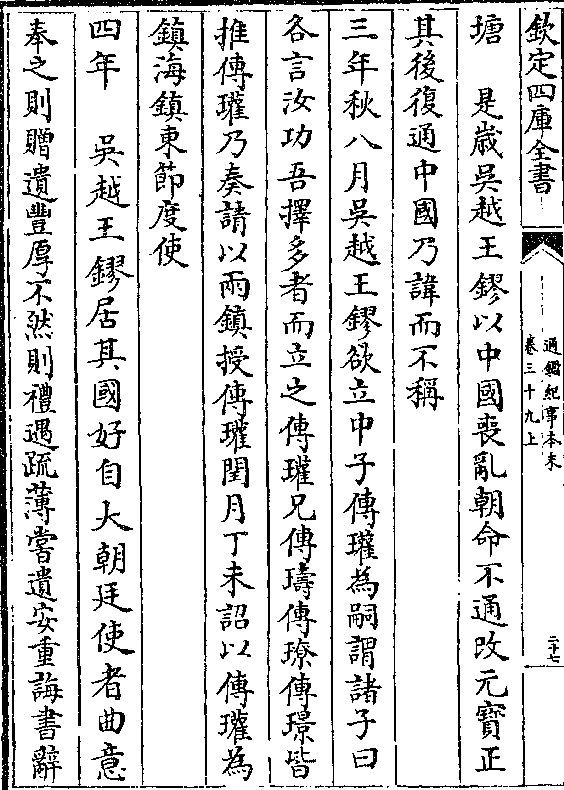 欽定四庫全書
通鑑紀事本末
卷三十九上
二十七
塘　是歳吳越王鏐以中國喪亂朝命不通改元寳正
其後復通中國乃諱而不稱
三年秋八月吳越王鏐欲立中子傳瓘為嗣謂諸子曰
各言汝功吾擇多者而立之傳瓘兄傳璹傳璙傳璟皆
推傳瓘乃奏請以兩鎮授傳瓘閏月丁未詔以傳瓘為
鎮海鎮東節度使
四年　吳越王鏐居其國好自大朝廷使者曲意
奉之則贈遺豐厚不然則禮遇疏薄嘗遺安重誨書辭